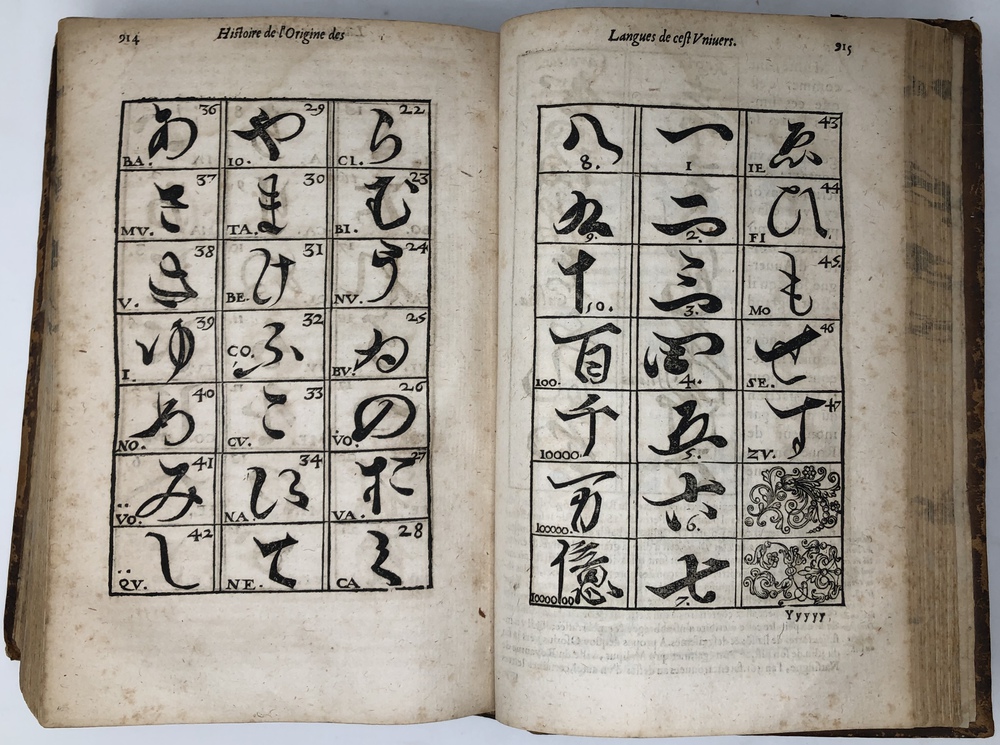 914 Histoire de l'Origine des
あ 36 BA. や 29 IO. ら 22 CI.
さ 37 MV. ま 30 TA. む 23 BI.
き 38 V. け 31 BE. う 24 NV.
ゆ 39 I. ふ 32 CO. ゐ 25 BV.
め 40 NO. こ 33 CV. の 26 VO.
み 41 VO. え 34 NA. お 27 VA.
し 42 QV. て NE. く 28 CA
Langues de cest Vniuers. 915
八 8. 一 1 ゑ 43 IE
九 9. 二 2. ひ 44 FI
十 10. 三 3. も 45. MO
百 100. 四 4. せ 46 SE.
千 10000. 五 5. す 47 ZV.
万 100000. 六 6.
億 七 7.
Yyyyy